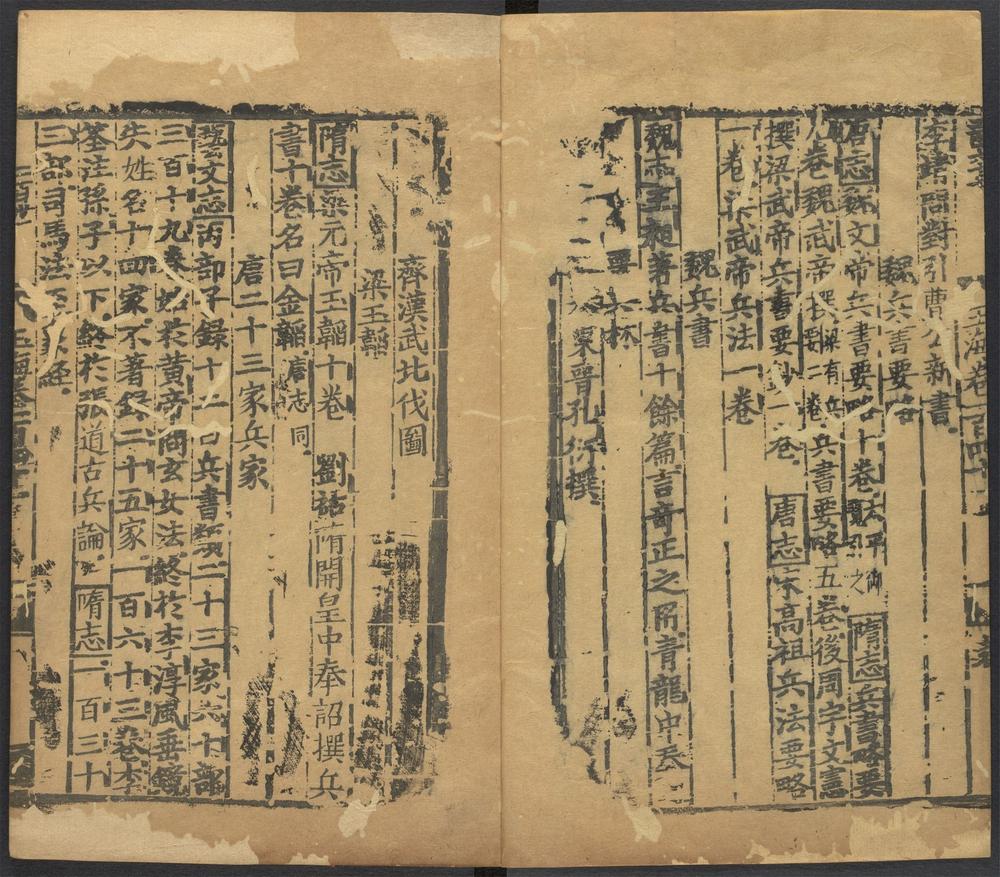 玉海卷一百四十
李靖問對引曹公新書
魏兵書要略
唐志魏文帝兵書要略十卷太平御覽引之 隋志兵書略要
九卷魏武帝撰梁有兵要二卷兵書要略五卷後周宇文憲
撰梁武帝兵書要鈔一卷 唐志宋高祖兵法要略
一卷梁武帝兵法一卷
魏兵書
魏志王昶著兵書十餘篇言奇正之用青龍中奏
要
晉孔衍撰
齊漢武北伐圖
梁玉韜
隋志梁元帝玉韜十卷 劉祐隋開皇中奉詔撰兵
書十卷名曰金韜唐志同
唐二十三家兵家
藝文志丙部子錄十二曰兵書類二十三家六十部
三百十九卷始於黃帝問玄女法終於李淳風垂鏡
失姓名十四家不著錄二十五家一百六十三卷李
筌注孫子以下終於張道古兵論 隋志一百三十
三部司馬法至
玉海卷一百四十